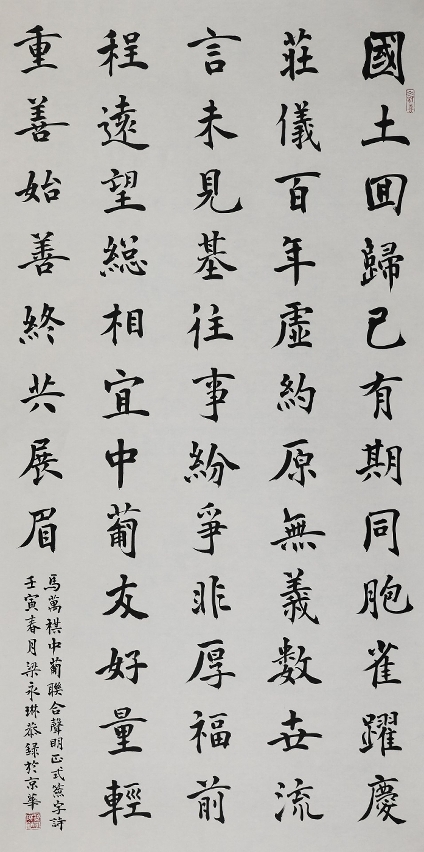 國土囬歸已有期同胞雀躍慶
莊儀百年虛約原無義數世流
言未見基往事紛爭非厚福前
程遠望緫相宜中葡友好量輕
重善始善終共展眉
馬萬祺中葡聯合聲明正式簽字詩
壬寅春月梁永琳恭錄於京華